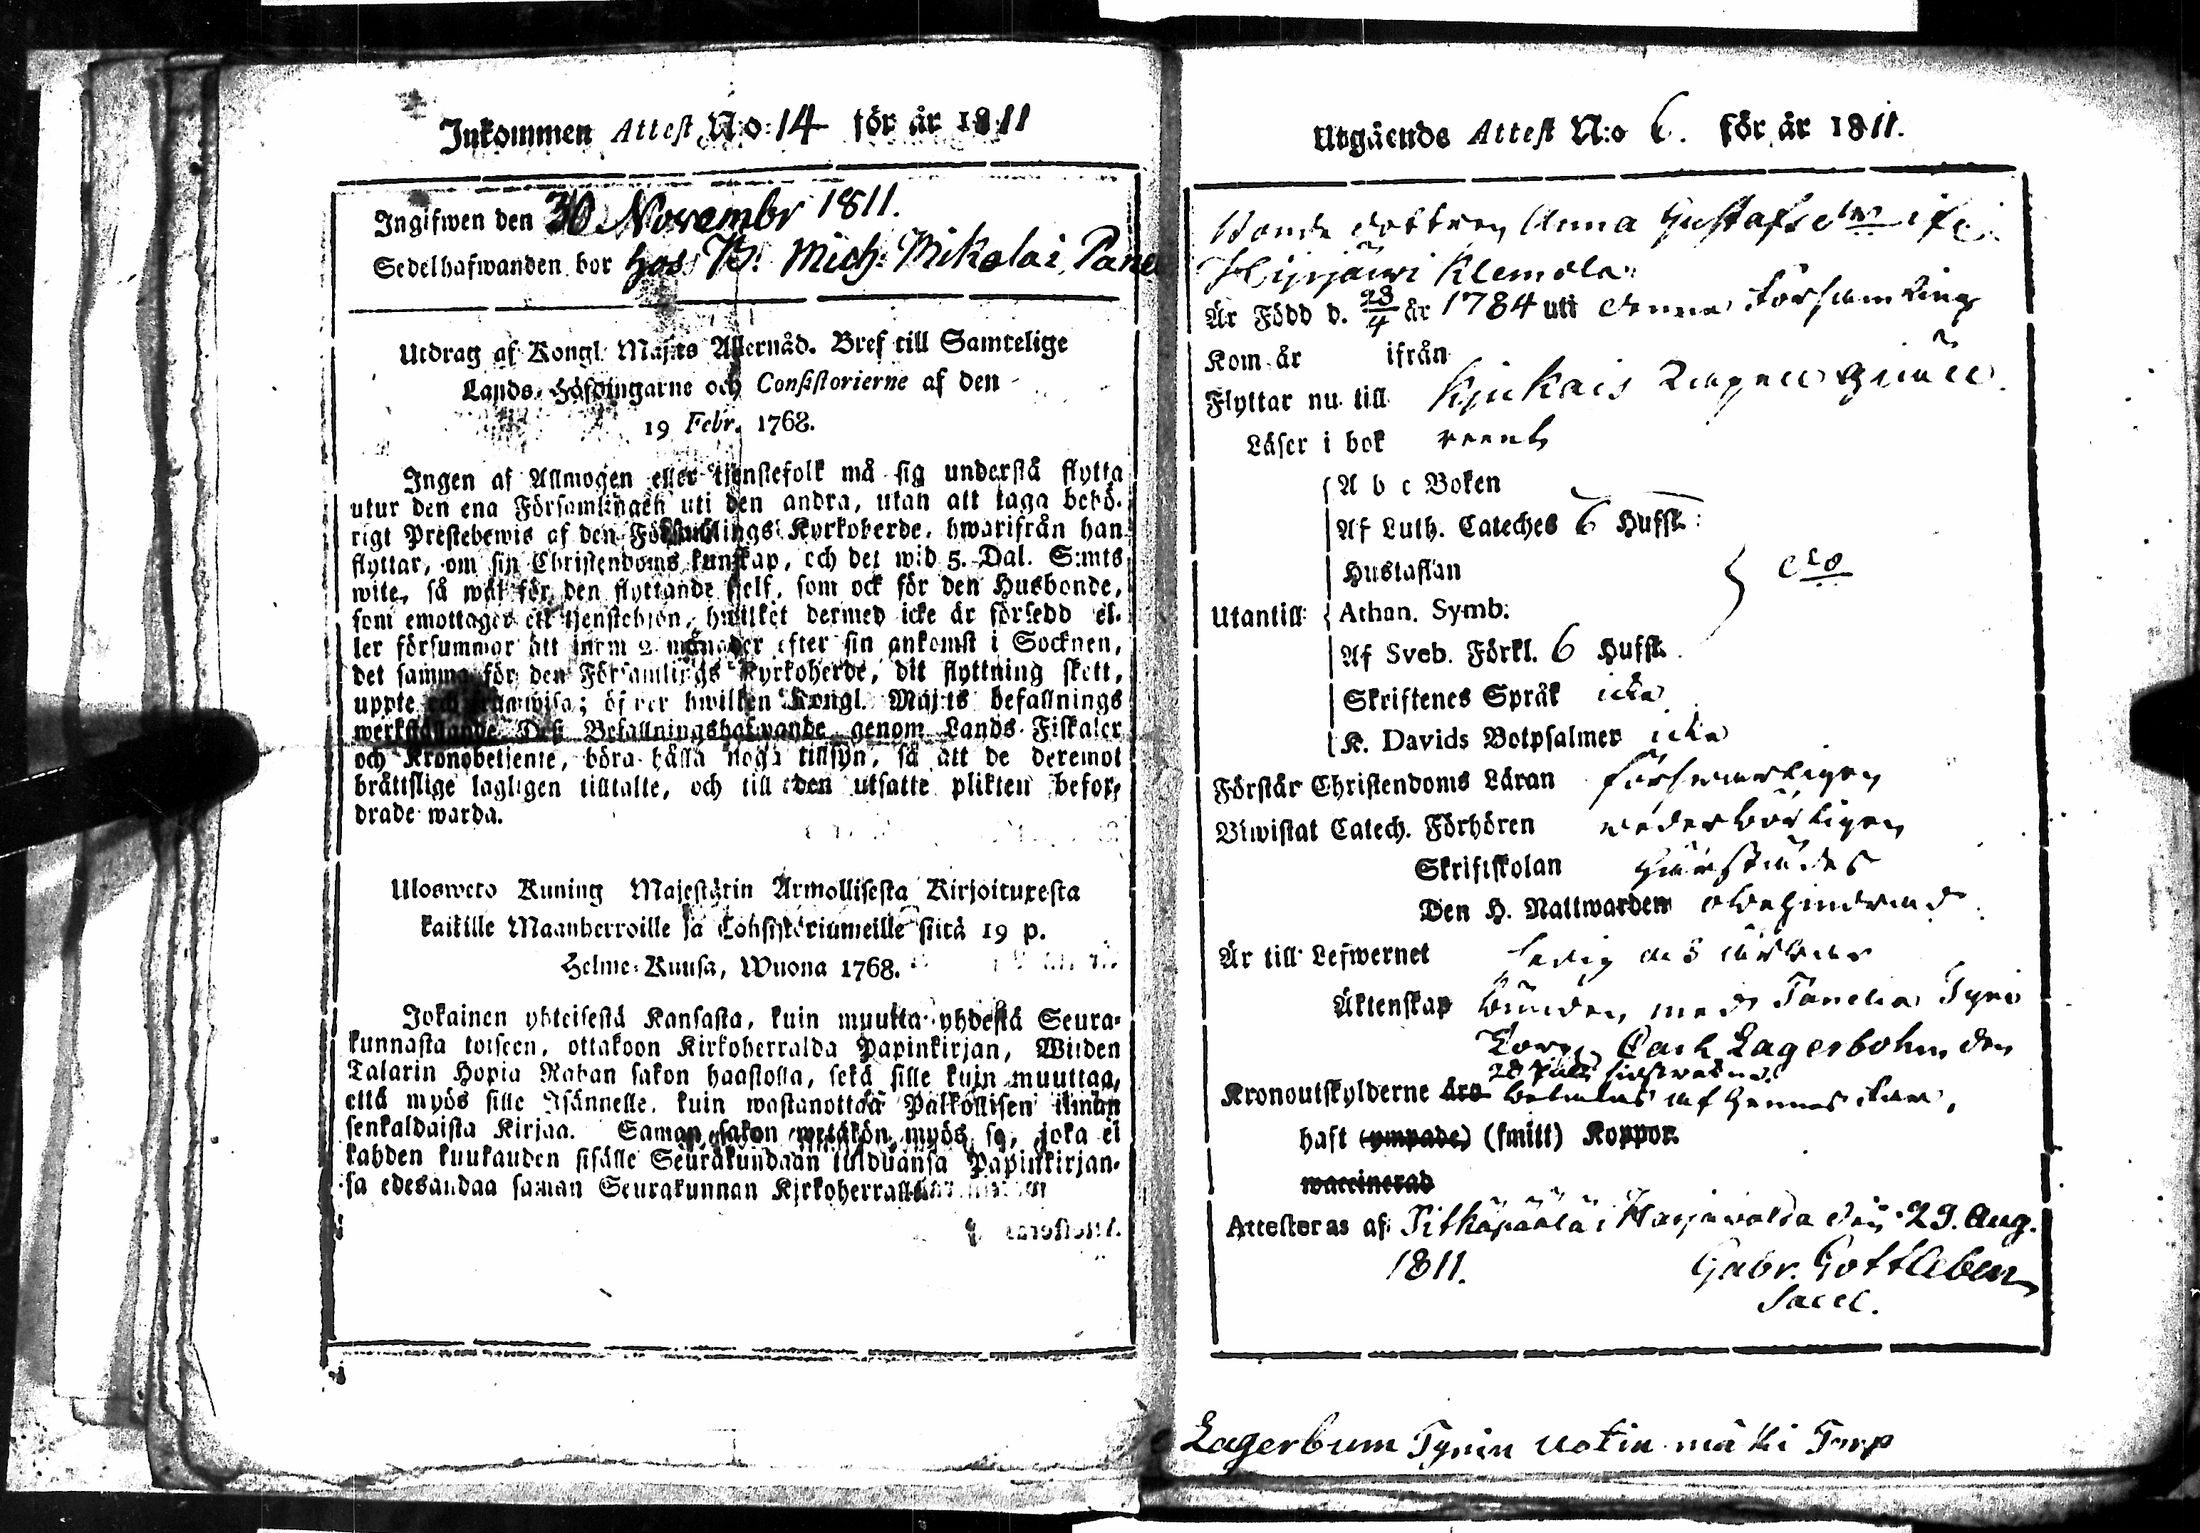 Inkommen Attest N:o 14 för år 1811
Ingifwen den 30 Novembr 1811.
Sedelhafwanden bor hos B. Mich: Mikola i Pane
Utdrag af Kongl. Maj:ts Allernåd. Bref till Samtelige
Lands-Höfdingarne och Consistorierne af den
19 Febr. 1768.
Ingen af Allmogen eller tjenstefolk må sig understå flytta
utur den ena Församlingen uti den andra, utan att taga behö-
rigt Prestebewis af den Församlings Kyrkoherde, hwarifrån han
flyttar, om sin Christendoms kunskap, och det wid 5. Dal. S:mts
wite, så wäl för den flyttande sjelf, som ock för den Husbonde,
som emottager ett tjenstehjon, hwilket dermed icke är försedd el-
ler försummar att inom 2 månader efter sin ankomst i Socknen,
det samma för den Församlings Kyrkoherde, dit flyttning skett,
uppte och framwisa; öfwer hwilken Kongl. Maj:ts befallnings
werkställande Dess Befallningshafwande genom Lands-Fiskaler
och Kronobetjente, böra hålla noga tillsyn, så att de deremot
bråttslige lagligen tilltalte, och till den utsatte plikten befor-
drade warda.
Ulosweto Kuning Majestätin Armollisesta Kirjoituxesta
kaikille Maanherroille ja Consistoriumeille siitä 19 p.
Helme-Kuusa, Wuona 1768.
Jokainen yhteisestä Kansasta, kuin muutta yhdestä Seura-
kunnasta toiseen, ottakoon Kirkoherralda Papinkirjan, Wiiden
Talarin Hopia Rahan sakon haastolla, sekä sille kuin muuttaa,
että myös sille Isännelle, kuin wastanottaa Palkollisen ilman
senkaldaista Kirjaa. Saman sakon wetäkön myös se, joka ei
kahden kuukauden sisälle Seurakundaan tulduansa Papinkirjan-
sa edesandaa saman Seurakunnan Kirkoherralle
Utgående Attest N:o 6. för år 1811.
Bonde dottren Anna Gustafsdr ifr.
Hijrjärwi Klemola
Är Född d. 28/4 år 1784 uti denna församling
Kom år ifrån
Flyttar nu till Kjukais Kapell
Läser i bok reent
A b c Boken
Af Luth. Cateches 6 Hufst:
Hustaflan
Utantill: Athan. Symb:
Af Sveb. Förkl. 6 Hufst.
Skriftenes Språk icke
K. Davids Botpsalmer icke
Förstår Christendoms Läran förswarligen
Biwistat Catech. Förhören wederbörligen
Skriftskolan härstädes
Den H. Nattwarden obehindrad.
Är till Lefwernet ledig och ärbar
Äktenskap bunden med Tanelia Tyni
Torp. Carl Lagerbohm den
Kronoutskylderne äro betalas af hennes far,
haft (ympade) (smitt) Koppor.
waccinerad
Attesteras af Pitkäpäälä i Harjavalda den 29. Aug.
1811. Gabr. Gottleben
Sacel.
Lagerbum Tynin Uotin mäki Torp